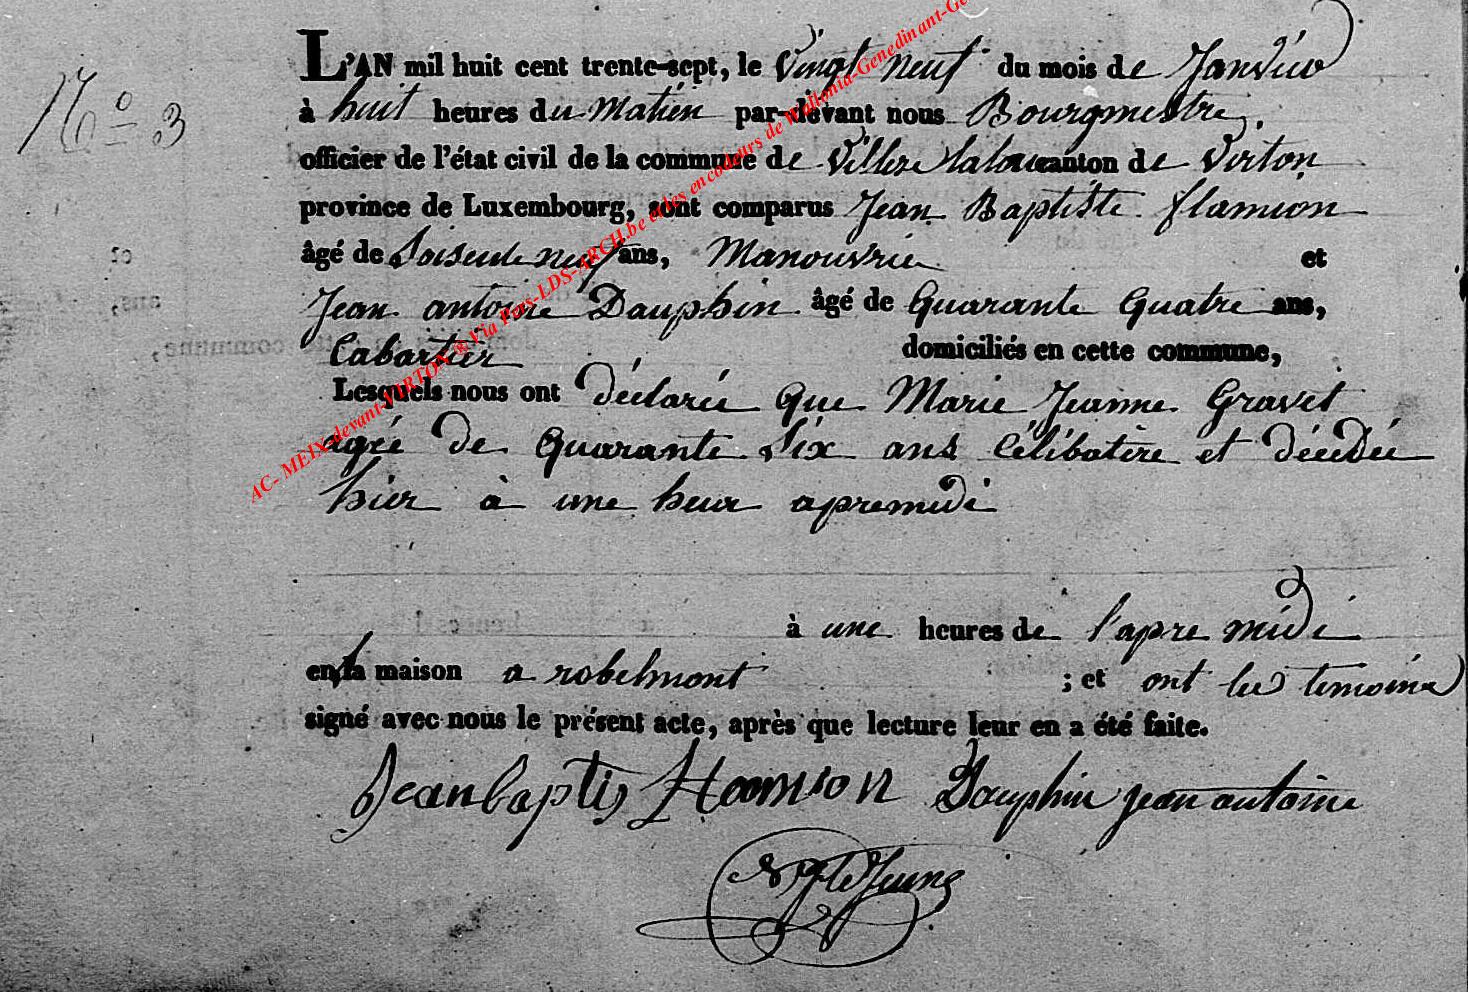 No 3
L'AN mil huit cent trente-sept, le Vingt neuf du mois de Janvier
à huit heures du Matien par-devant nous Bourgmestre,
officier de l'état civil de la commune de Villers laloue canton de Virton
province de Luxembourg, sont comparus Jean Baptiste flamion
âgé de Soisente neuf ans, Manouvrie et
Jean antoine Dauphin âgé de Quarante Quatre ans,
Cabartier domiciliés en cette commune,
Lesquels nous ont déclarée que Marie Jeanne Gravet
agée de Quarante Six ans Célibatère et décédée
hier à une heur apremidi
à une heures de l'apre midi
en la maison a robelmont ; et ont les temoins
signé avec nous le présent acte, après que lecture leur en a été faite.
Jean baptis flamion Dauphin jean antoine
AC- MEIX-devant-VIRTON ® Via Pers-LDS-ARCH.be et les encodeurs de Wallonia-Genedinant-Ge